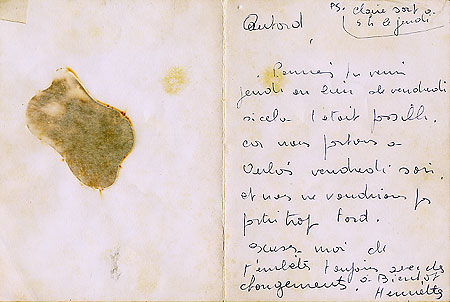 PS. Claire sort à
5 h le jeudi

Pourrais tu venir
jeudi au lieu de vendredi
si cela t'était possible,
car nous partons à
vendredi soir.
et nous ne voudrions pas
partir trop tard.
Excuse-moi de
t'embêter toujours avec des
changements. à Bientôt
Henriette